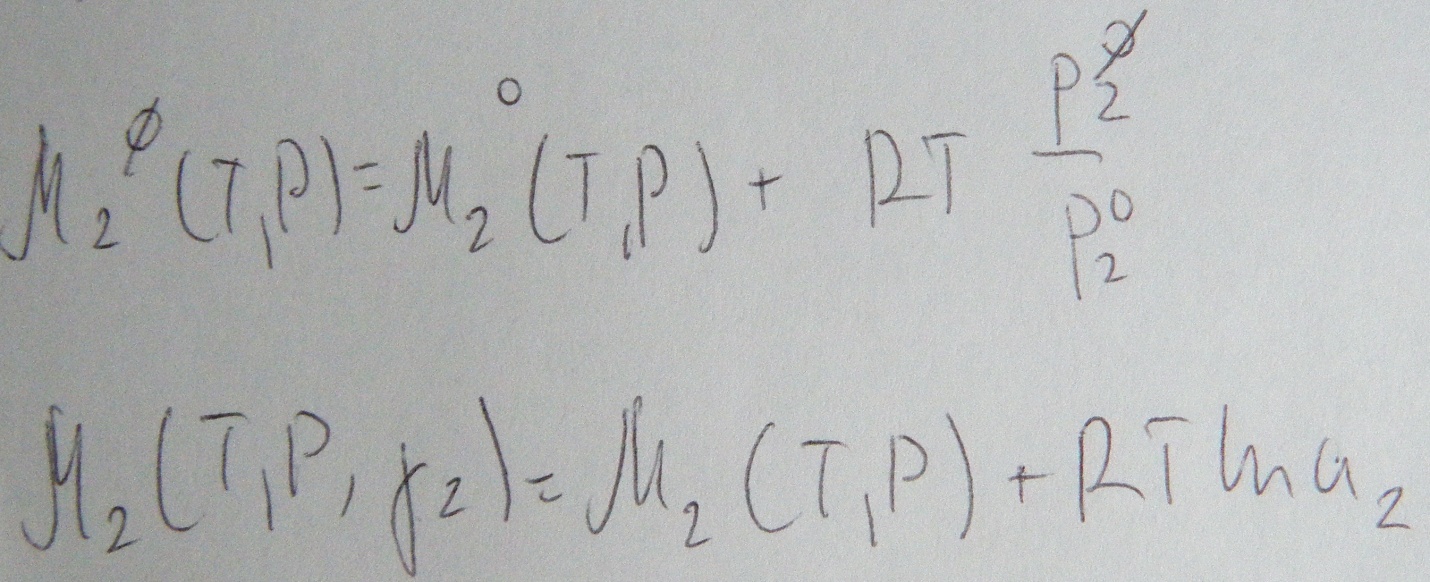 μ₂^ϕ (T,P) = μ₂° (T,P) + RT P₂^ϕ / P₂⁰
μ₂ (T,P, γ₂) = μ₂ (T,P) + RT ln a₂